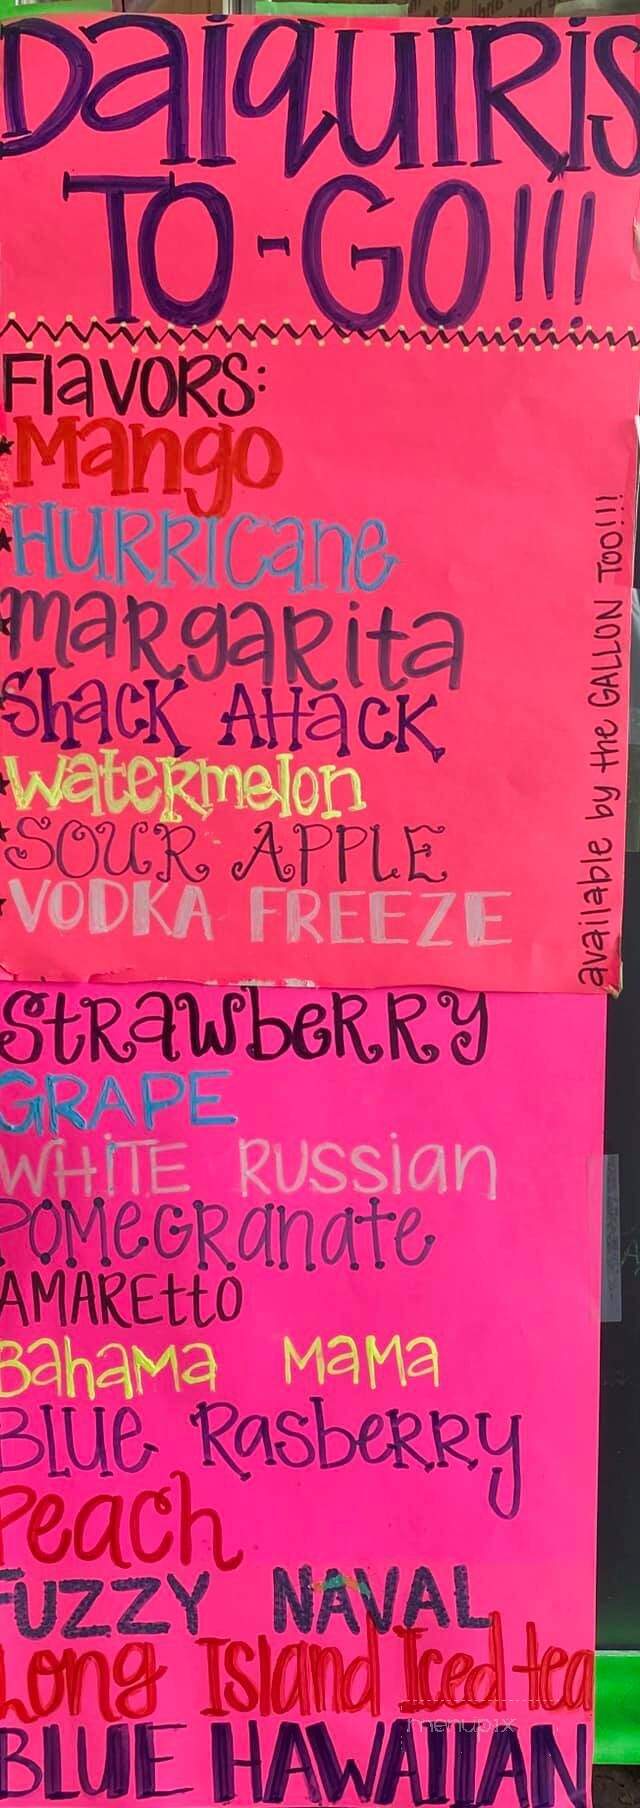 DaiquiRis
TO-GO!!!
FlavoRs:
Mango
HURRICane
maRgaRita
Shack Attack
WateRmelon
SOUR APPLE
VODKA FREEZE
available by the GALLON TOO!!!
StRawbeRRy
GRAPE
WHiTE RUSSian
POMeGRanate
AMAREttO
BahaMa MaMa
BLUe RasbeRRy
Peach
FUZZY NAVAL
Long Island Iced tea
BLUE HAWAIIAN
menupix